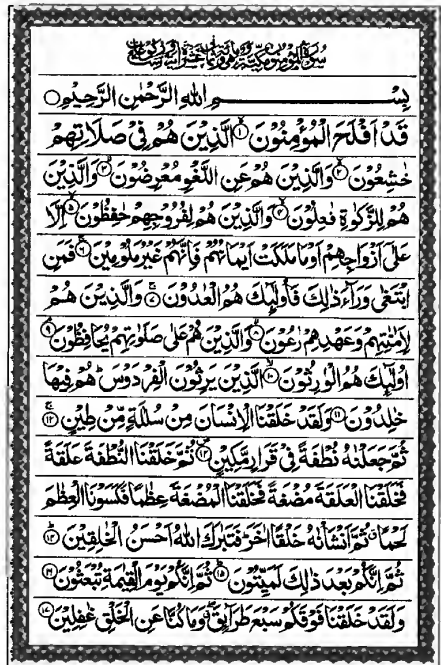 بِسْمِ اللهِ الرَّحْمٰنِ الرَّحِيْمِ
قَدْ اَفْلَحَ الْمُؤْمِنُوْنَ ۙ﴿١﴾ الَّذِيْنَ هُمْ فِيْ صَلَاتِهِمْ
خٰشِعُوْنَ ۙ﴿٢﴾ وَالَّذِيْنَ هُمْ عَنِ اللَّغْوِ مُعْرِضُوْنَ ۙ﴿٣﴾ وَالَّذِيْنَ
هُمْ لِلزَّكٰوةِ فٰعِلُوْنَ ۙ﴿٤﴾ وَالَّذِيْنَ هُمْ لِفُرُوْجِهِمْ حٰفِظُوْنَ ۙ﴿٥﴾ اِلَّا
عَلٰٓى اَزْوَاجِهِمْ اَوْ مَا مَلَكَتْ اَيْمَانُهُمْ فَاِنَّهُمْ غَيْرُ مَلُوْمِيْنَ ۚ﴿٦﴾ فَمَنِ
ابْتَغٰى وَرَآءَ ذٰلِكَ فَاُولٰٓئِكَ هُمُ الْعٰدُوْنَ ۚ﴿٧﴾ وَالَّذِيْنَ هُمْ
لِاَمٰنٰتِهِمْ وَعَهْدِهِمْ رٰعُوْنَ ۙ﴿٨﴾ وَالَّذِيْنَ هُمْ عَلٰى صَلَوٰتِهِمْ يُحَافِظُوْنَ ۘ﴿٩﴾
اُولٰٓئِكَ هُمُ الْوٰرِثُوْنَ ۙ﴿١٠﴾ الَّذِيْنَ يَرِثُوْنَ الْفِرْدَوْسَ ؕ هُمْ فِيْهَا
خٰلِدُوْنَ ﴿١١﴾ وَلَقَدْ خَلَقْنَا الْاِنْسَانَ مِنْ سُلٰلَةٍ مِّنْ طِيْنٍ ۚ﴿١٢﴾
ثُمَّ جَعَلْنٰهُ نُطْفَةً فِيْ قَرَارٍ مَّكِيْنٍ ۪﴿١٣﴾ ثُمَّ خَلَقْنَا النُّطْفَةَ عَلَقَةً
فَخَلَقْنَا الْعَلَقَةَ مُضْغَةً فَخَلَقْنَا الْمُضْغَةَ عِظٰمًا فَكَسَوْنَا الْعِظٰمَ
لَحْمًا ۗ ثُمَّ اَنْشَاْنٰهُ خَلْقًا اٰخَرَ ؕ فَتَبٰرَكَ اللهُ اَحْسَنُ الْخٰلِقِيْنَ ؕ﴿١٤﴾
ثُمَّ اِنَّكُمْ بَعْدَ ذٰلِكَ لَمَيِّتُوْنَ ؕ﴿١٥﴾ ثُمَّ اِنَّكُمْ يَوْمَ الْقِيٰمَةِ تُبْعَثُوْنَ ﴿١٦﴾
وَلَقَدْ خَلَقْنَا فَوْقَكُمْ سَبْعَ طَرَآئِقَ ۖ وَمَا كُنَّا عَنِ الْخَلْقِ غٰفِلِيْنَ ﴿١٧﴾